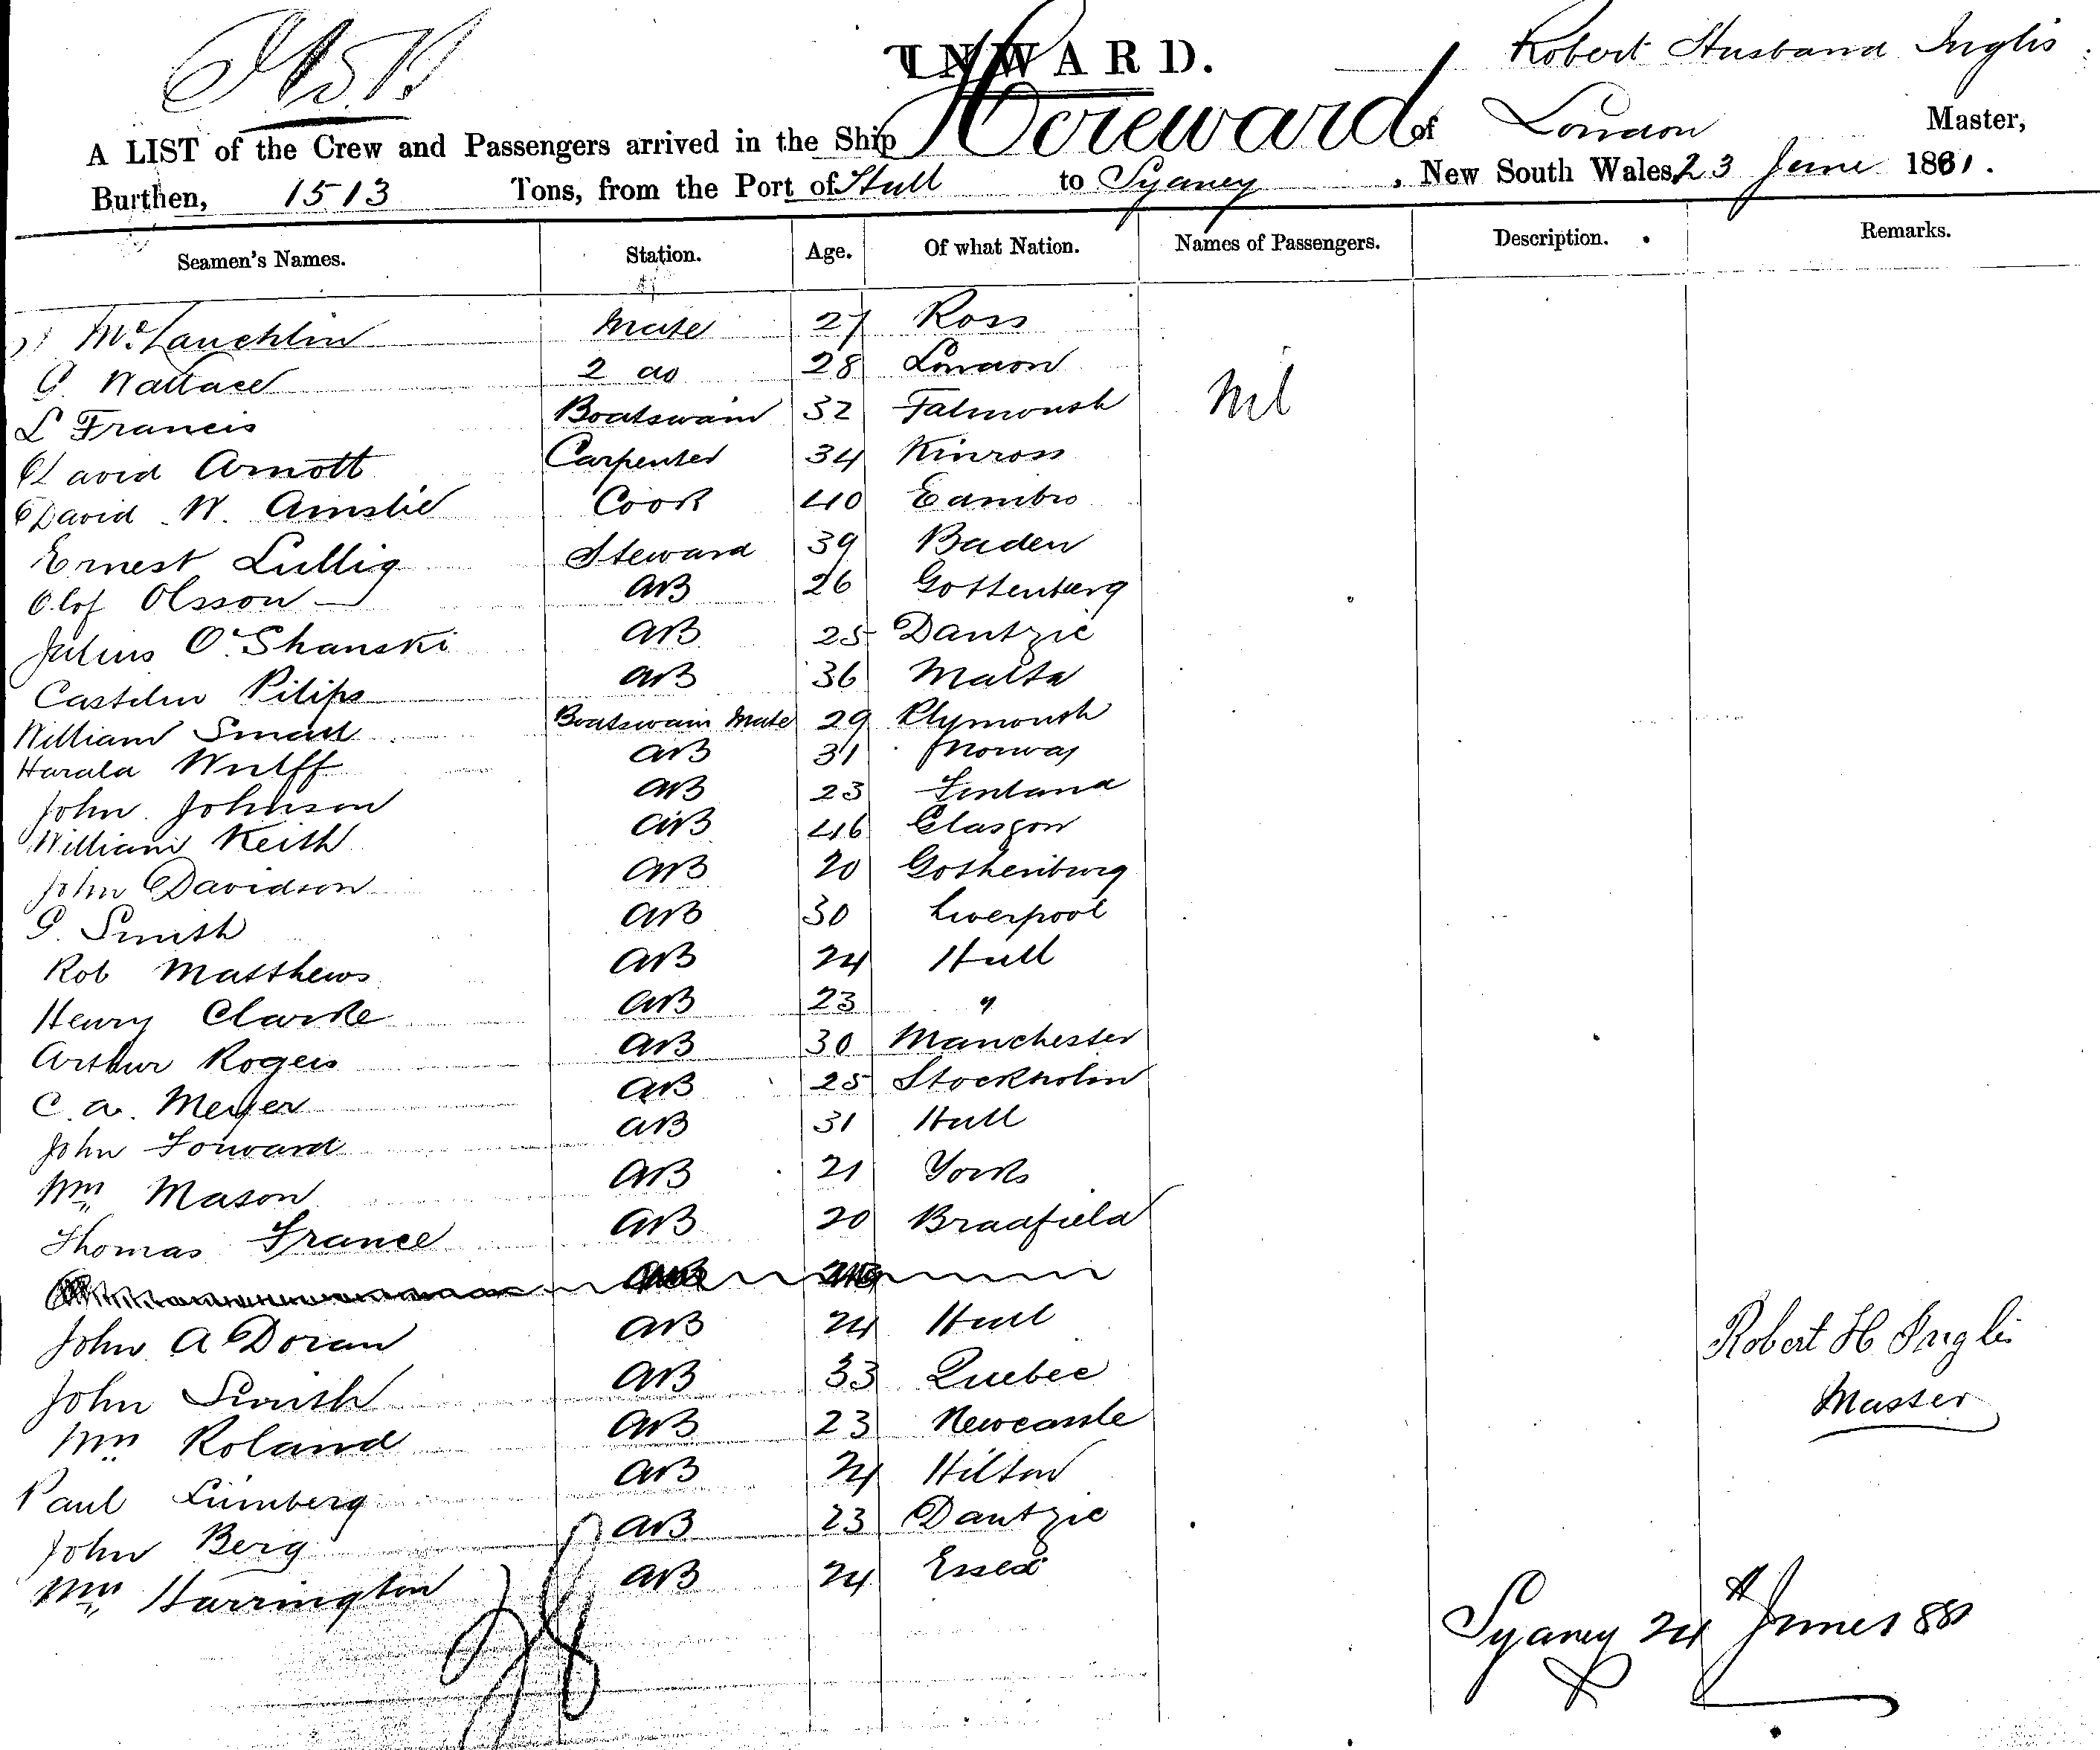 INWARD.
Robert Husband Inglis
A LIST of the Crew and Passengers arrived in the Ship Hereward of London Master,
Burthen, 1513 Tons, from the Port of Hull to Sydney, New South Wales, 23 June 1881.
Seamen's Names. Station. Age. Of what Nation. Names of Passengers. Description. Remarks.
McLauchlin Mate 27 Ross
G. Wallace 2 do 28 London
L Francis Boatswain 32 Falmouth Nil
David Arnott Carpenter 34 Kinross
David W. Ainslie Cook 40 Edinbro
Ernest Lullig Steward 39 Baden
Olof Olsson AB 26 Gottenberg
Julius O'Shanski AB 25 Dantzic
Castelen Pilips AB 36 Malta
William Small Boatswain Mate 29 Plymouth
Harald Wulff AB 31 Norway
John Johnson AB 23 Finland
William Keith AB 46 Glasgow
John Davidson AB 20 Gothenburg
G. Smith AB 30 Liverpool
Rob Matthews AB 24 Hull
Henry Clarke AB 23 "
Arthur Rogers AB 30 Manchester
C. A. Meyer AB 25 Stockholm
John Forward AB 31 Hull
Wm Mason AB 21 York
Thomas France AB 20 Bradfield
John A Doran AB 24 Hull
John Smith AB 33 Quebec
Wm Roland AB 23 Newcastle
Paul Lumberg AB 24 Hilton
John Berg AB 23 Dantzic
Wm Harrington AB 24 Essex
Robert H Inglis
Master
Sydney 24th June 1881